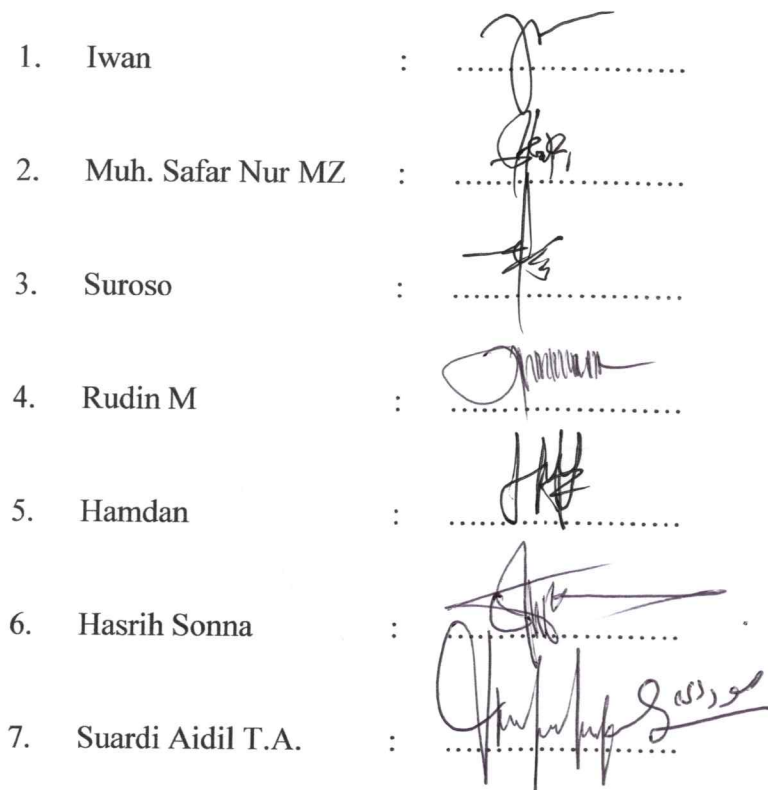 1. Iwan : ..............................
2. Muh. Safar Nur MZ : ..............................
3. Suroso : ..............................
4. Rudin M : ..............................
5. Hamdan : ..............................
6. Hasrih Sonna : ..............................
7. Suardi Aidil T.A. : ..............................